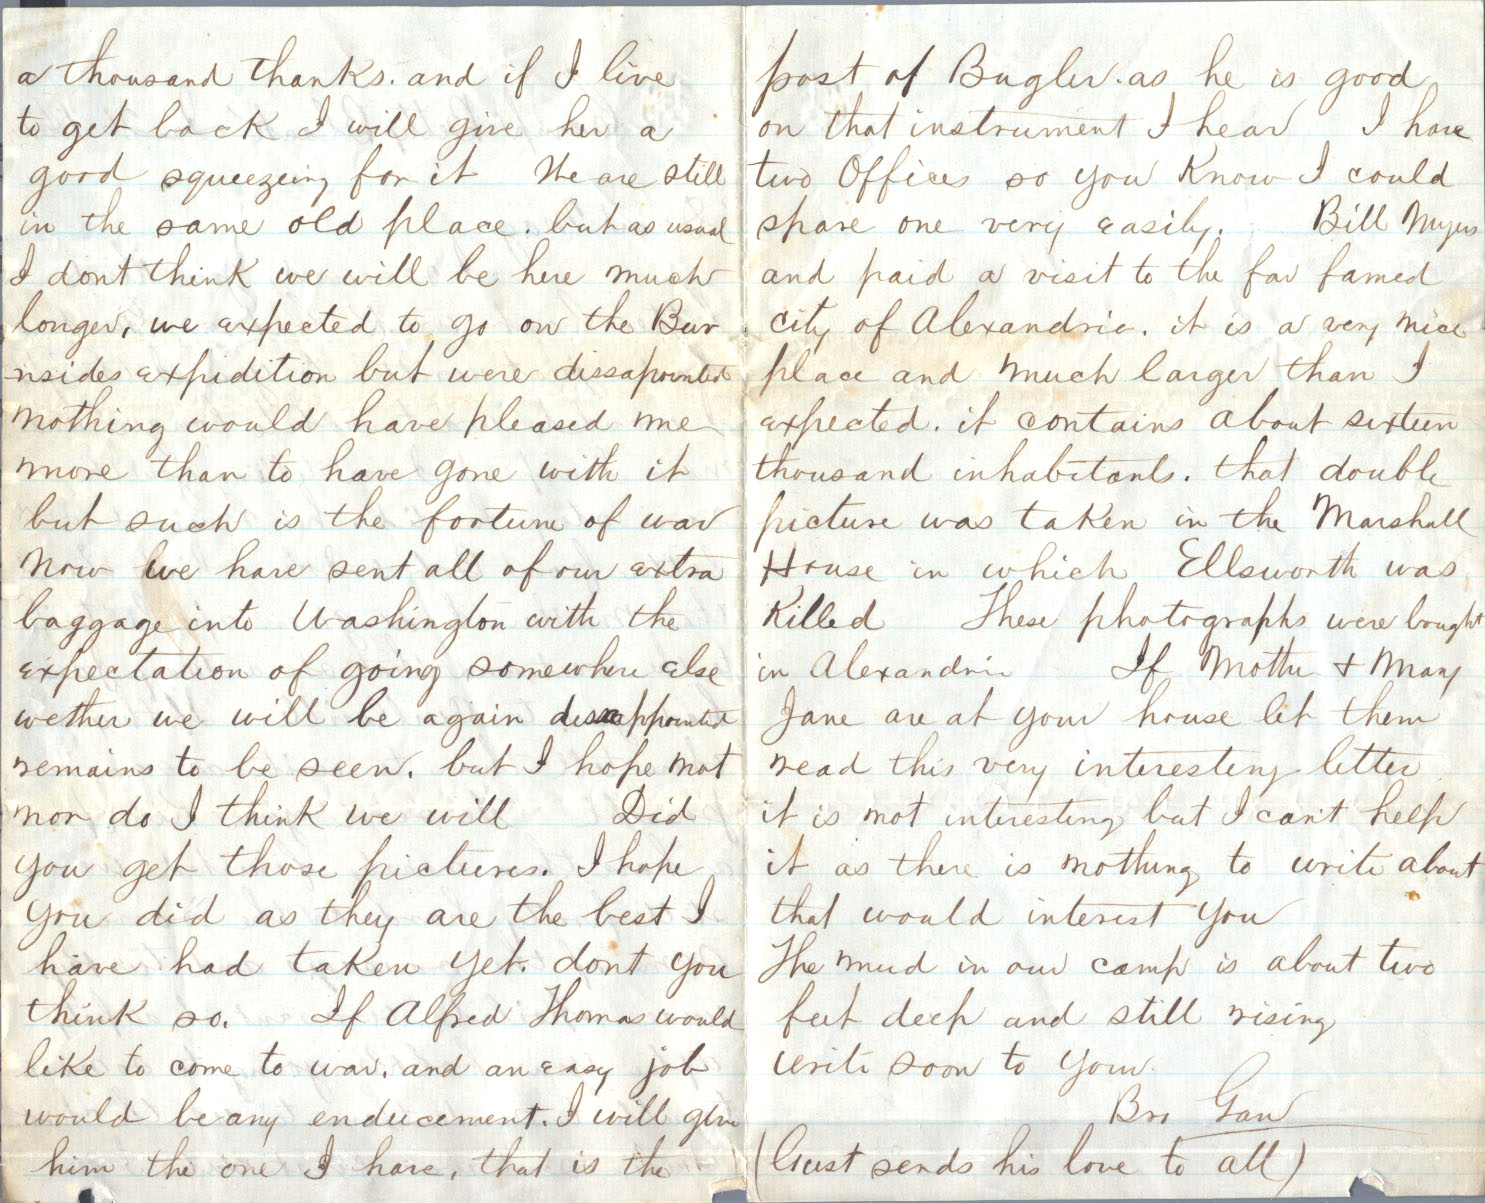 a thousand thanks. and if I live
to get back I will give her a
good squeezeing for it We are still
in the same old place. but as usual
I dont think we will be here much
longer, we expected to go on the Bur
nsides expidition but were dissapointed
nothing would have pleased me
more than to have gone with it
but such is the fortune of war
Now we have sent all of our extra
baggage into Washington with the
expectation of going somewhere else
wether we will be again dissappointed
remains to be seen. but I hope not
nor do I think we will Did
you get those pictures. I hope
you did as they are the best I
have had taken yet. dont you
think so. If Alfred Thomas would
like to come to war. and an easy job
would be any enducement. I will give
him the one I have, that is the
post of Bugler. as he is good
on that instrument I hear I have
two Offices so you Know I could
spare one very easily. Bill Myers
and paid a visit to the far famed
city of Alexandria. it is a very nice
place and much larger than I
expected. it contains about sixteen
thousand inhabitants. that double
picture was taken in the Marshall
House in which Ellsworth was
Killed These photographs were bought
in Alexandria If Mother & Mary
Jane are at your house let them
read this very interesting letter
it is not interesting but I can't help
it as there is nothing to write about
that would interest you
The mud in our camp is about two
feet deep and still rising
write soon to your
Bro Gaw
(Gust sends his love to all)